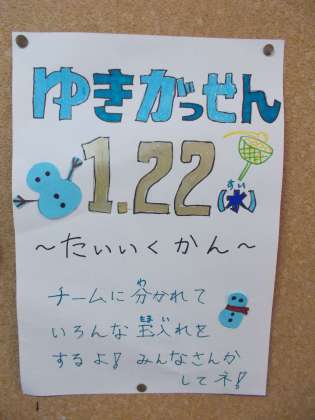 ゆきがっせん
1.22(水)
すい
～たいいくかん～
チームに分かれて
わ
いろんな玉入れを
たまい
するよ！みんなさんか
してネ！